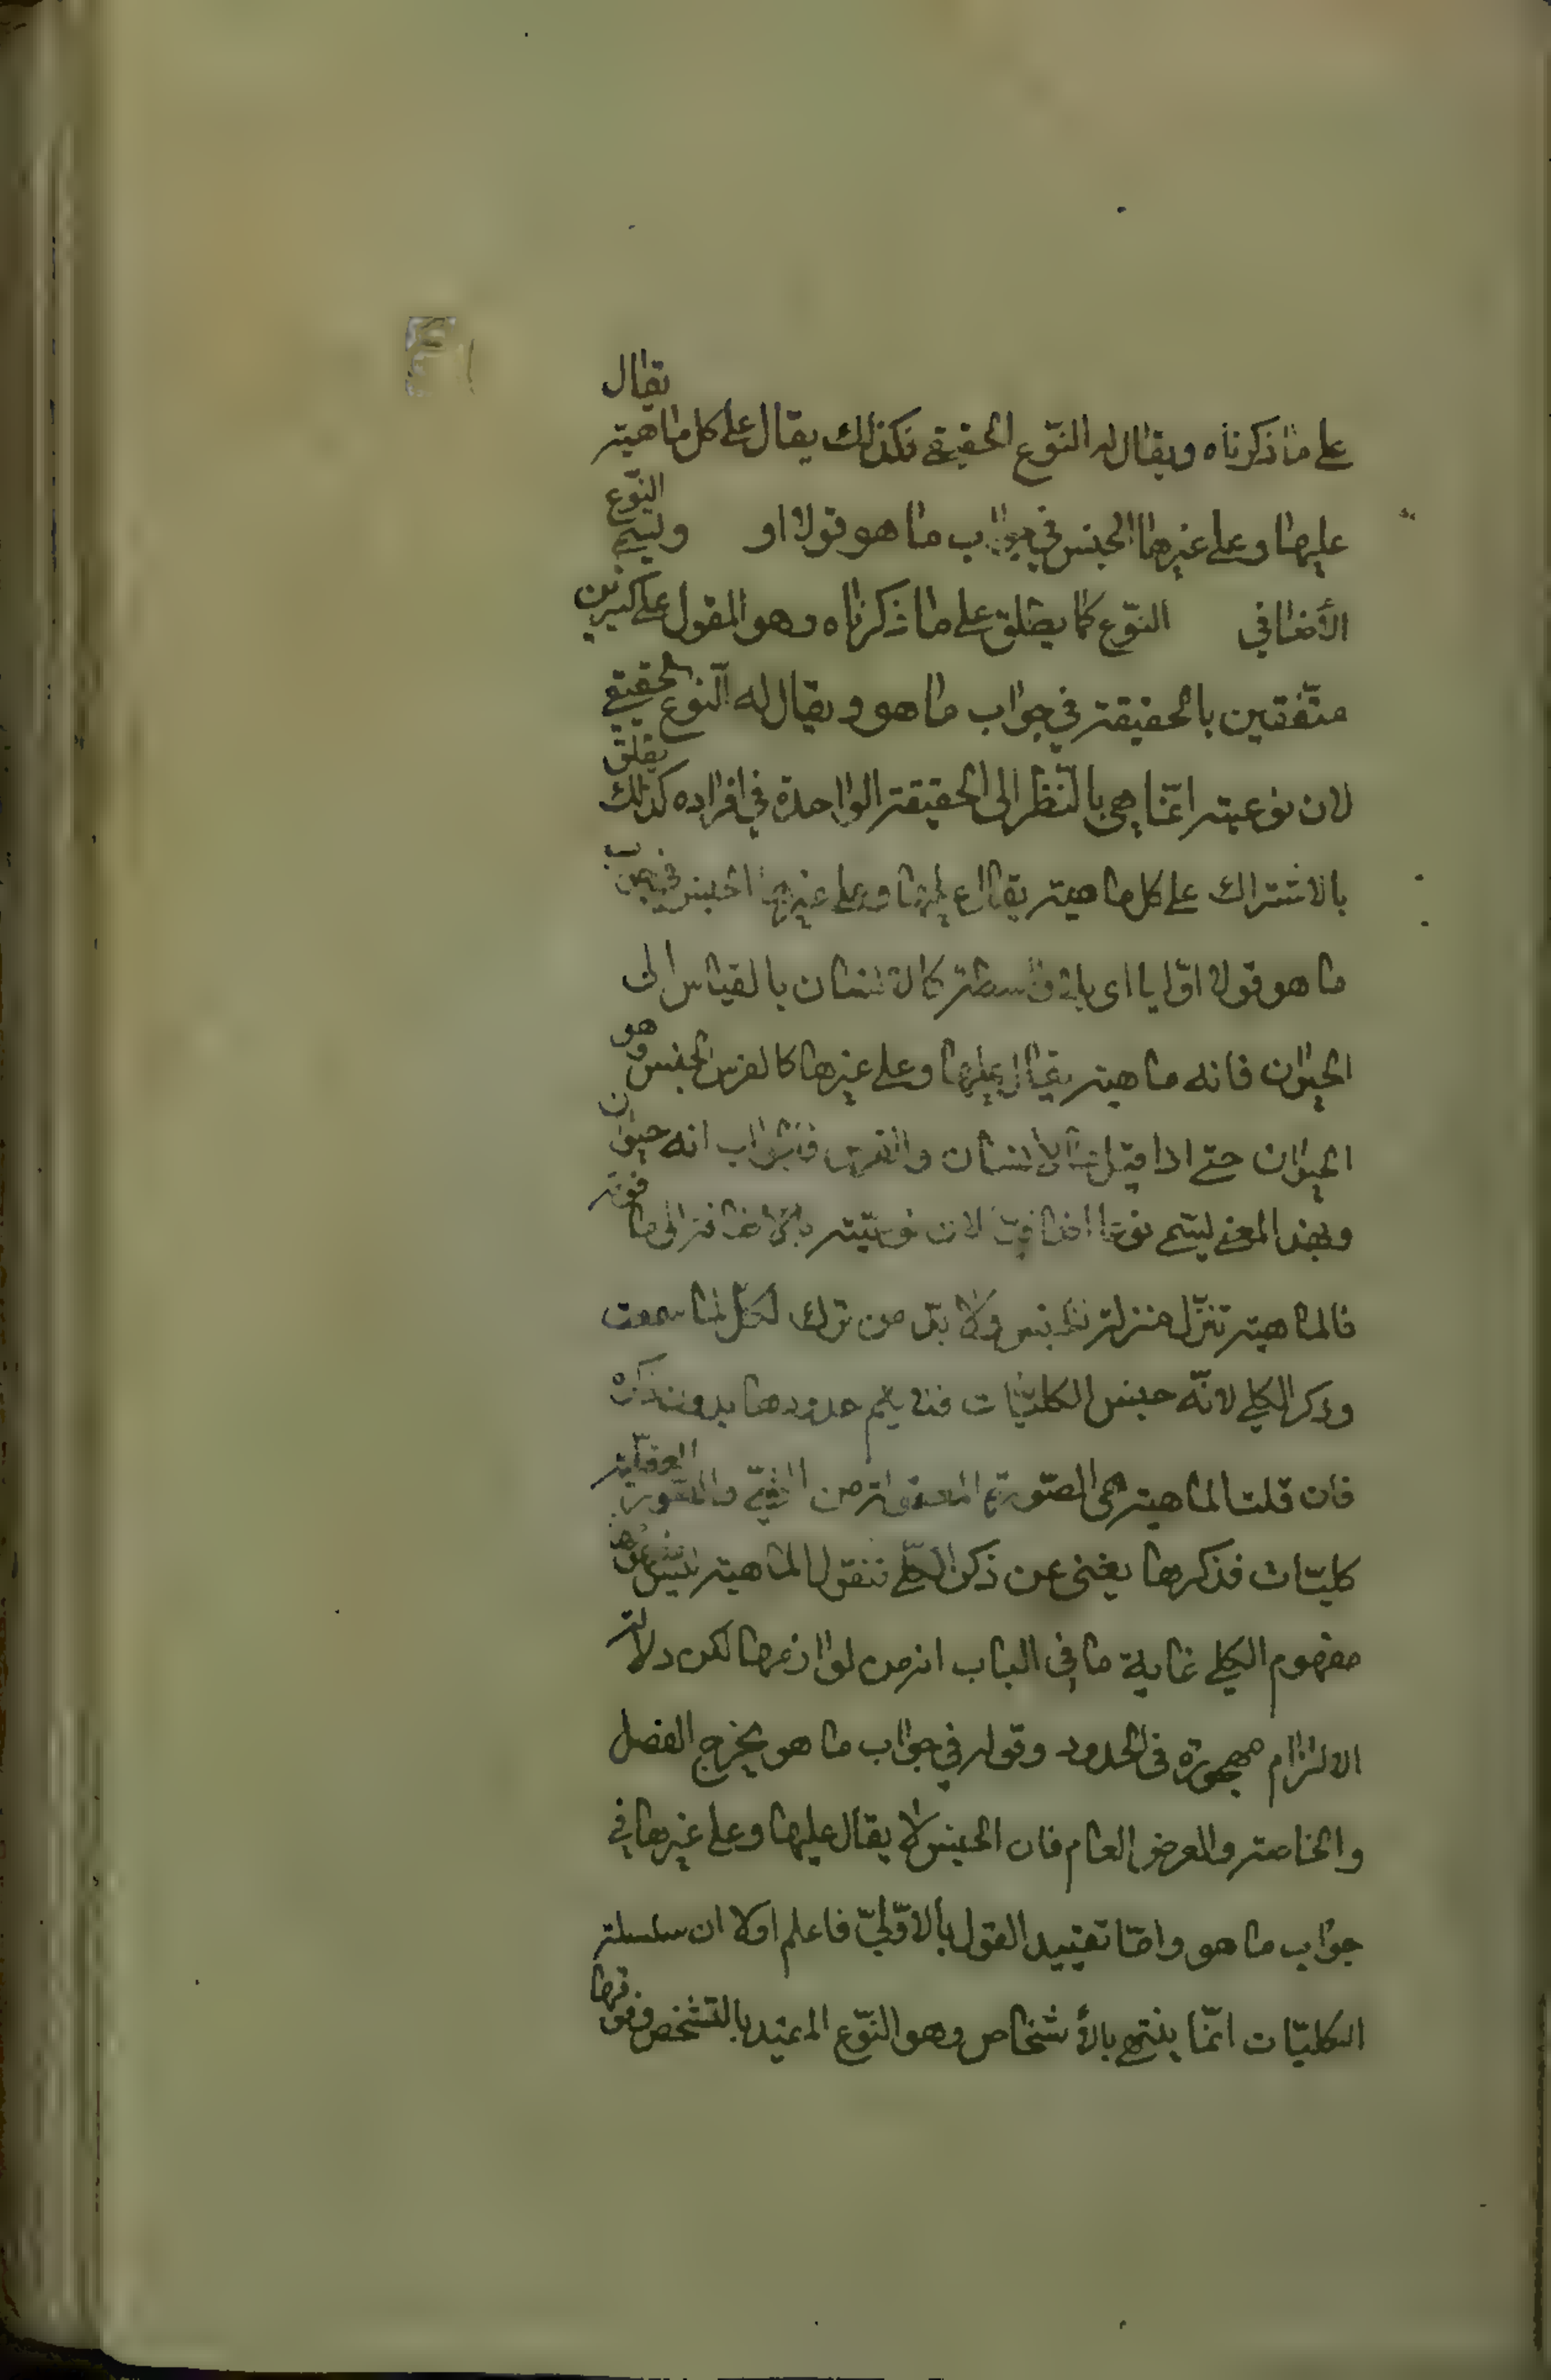 على ما ذكرناه ويقال له النّوع الحقيقي فكذلك يقال على كل ماهية يقال
عليها وعلى غيرها الجنس في جواب ما هو قولا او وليسمى النّوع
الأضافي النّوع كما يطلق على ما ذكرناه وهو المقول على كثيرين
متّفقين بالحقيقة في جواب ما هو ويقال له النوع الحقيقي
لان نوعيته انّما هي بالنّظر الى الحقيقة الواحدة في افراده كذلك يطلق
بالاشتراك على كل ماهية يقال عليها وعلى غيرها الجنس في جواب
ما هو قولا اوّليا اى بلا واسطة كالانسان بالقياس الى
الحيوان فانه ماهية يقال عليها وعلى غيرها كالفرس الجنس وهو
الحيوان حتى اذا قيل ما الانسان والفرس فالجواب انه حيوان
وبهذا المعنى ليسمى نوعا اضافيا لان نوعيّته بالاضافة الى ما فوقه
فالماهية تنزّل منزلة الجنس ولا بدّ من ترك لكلّ لما سمعت
وذكر الكلي لانّه جنس الكليّات فلا يتم حدودها بدون ذكره
فان قلت الماهية هي الصّورة المعقولة من الشيّ والصّور العقلية
كليّات فذكرها يغنى عن ذكر الكلّي فنقول الماهية ليس مفهومها
مفهوم الكلي غاية ما في الباب انه من لوازمها لكن دلالة
الالتزام مهجورة في الحدود وقوله في جواب ما هو يخرج الفصل
والخاصة والعرض العام فان الجنس لا يقال عليها وعلى غيرها في
جواب ما هو وامّا تقييد القول بالاوّليّ فاعلم اولا ان سلسلة
الكليّات انّما ينتهي بالأشخاص وهو النّوع المقيد بالتشخص وفوقها